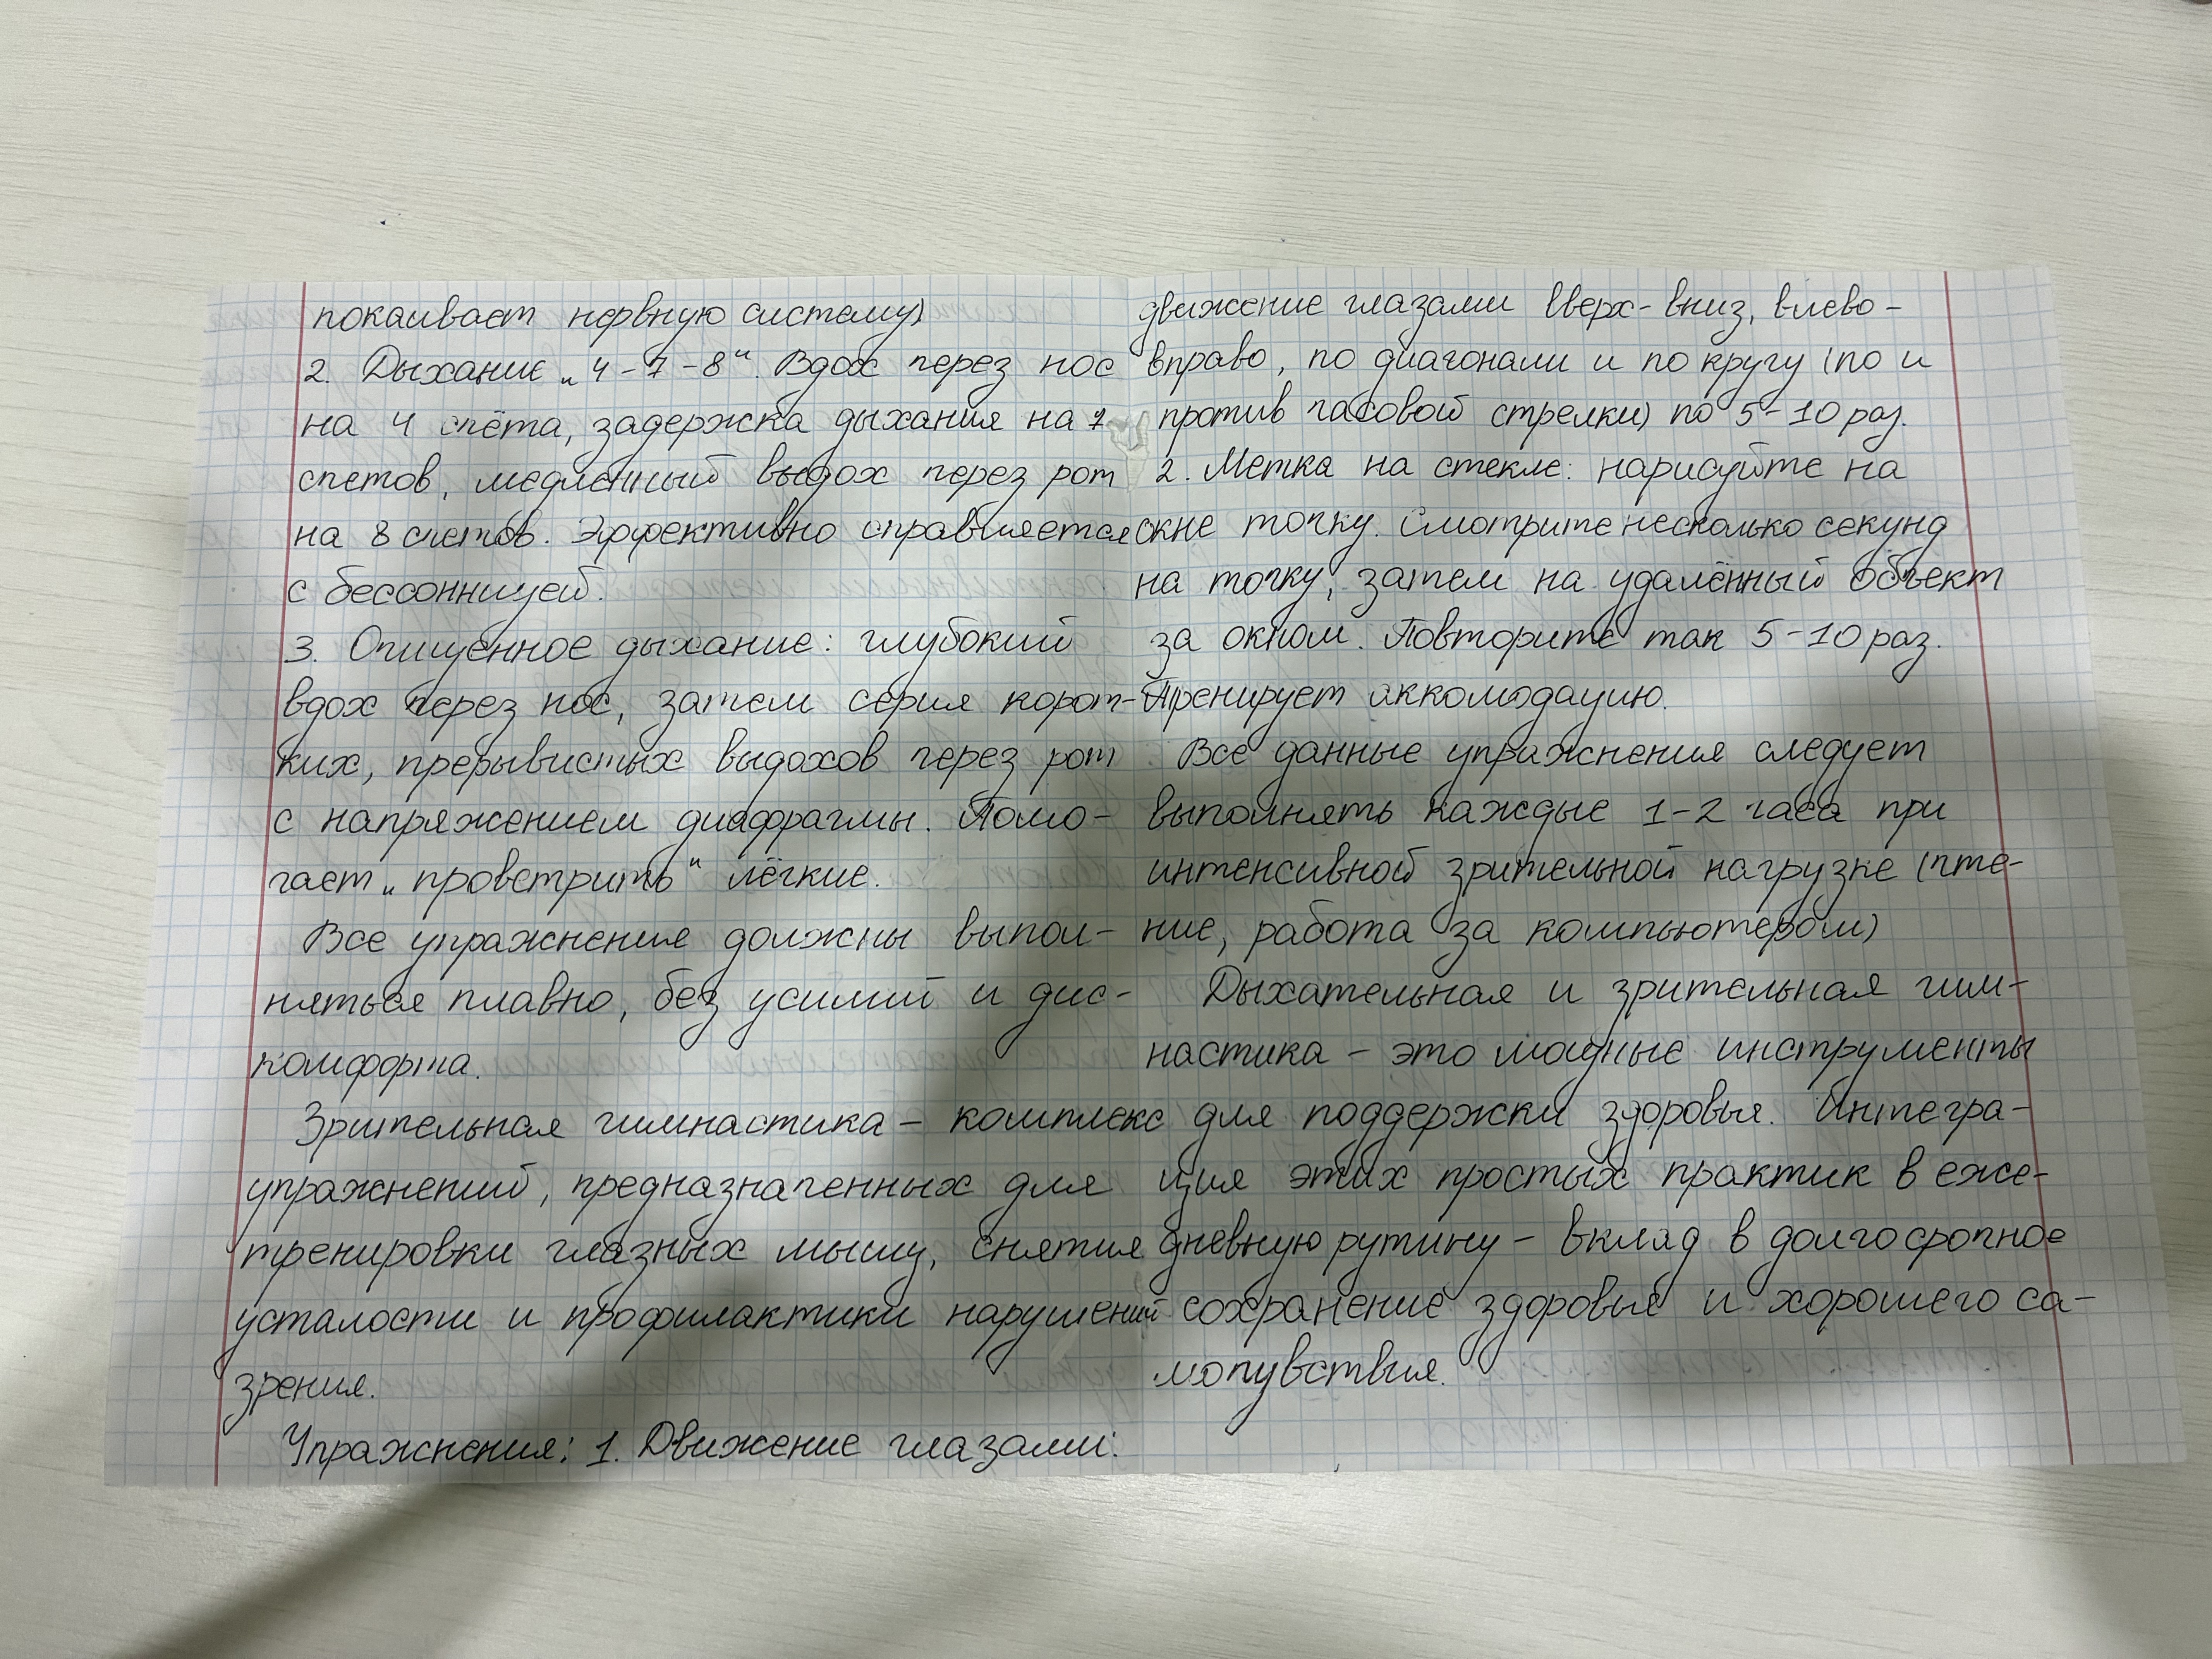 покаивает нервную систему)
2. Дыхание „4-7-8“. Вдох через нос
на 4 счёта, задержка дыхания на 7
счетов, медленный выдох через рот
на 8 счетов. Эффективно справляется
с бессонницей.
3. Очищенное дыхание: глубокий
вдох через нос, затем серия корот-
ких, прерывистых выдохов через рот
с напряжением диафрагмы. Помо-
гает „проветрить“ лёгкие.
Все упражнения должны выпол-
няться плавно, без усилий и дис-
комфорта.
Зрительная гимнастика – комплекс
упражнений, предназначенных для
тренировки глазных мышц, снятия
усталости и профилактики нарушений
зрения.
Упражнения: 1. Движение глазами:
движение глазами вверх-вниз, влево-
вправо, по диагонали и по кругу (по и
против часовой стрелки) по 5-10 раз.
2. Метка на стекле: нарисуйте на
окне точку. Смотрите несколько секунд
на точку, затем на удалённый объект
за окном. Повторите так 5-10 раз.
Тренирует аккомодацию.
Все данные упражнения следует
выполнять каждые 1-2 часа при
интенсивной зрительной нагрузке (чте-
ние, работа за компьютером)
Дыхательная и зрительная гим-
настика – это мощные инструменты
для поддержки здоровья. Интегра-
ция этих простых практик в еже-
дневную рутину – вклад в долгосрочное
сохранение здоровья и хорошего са-
мочувствия.